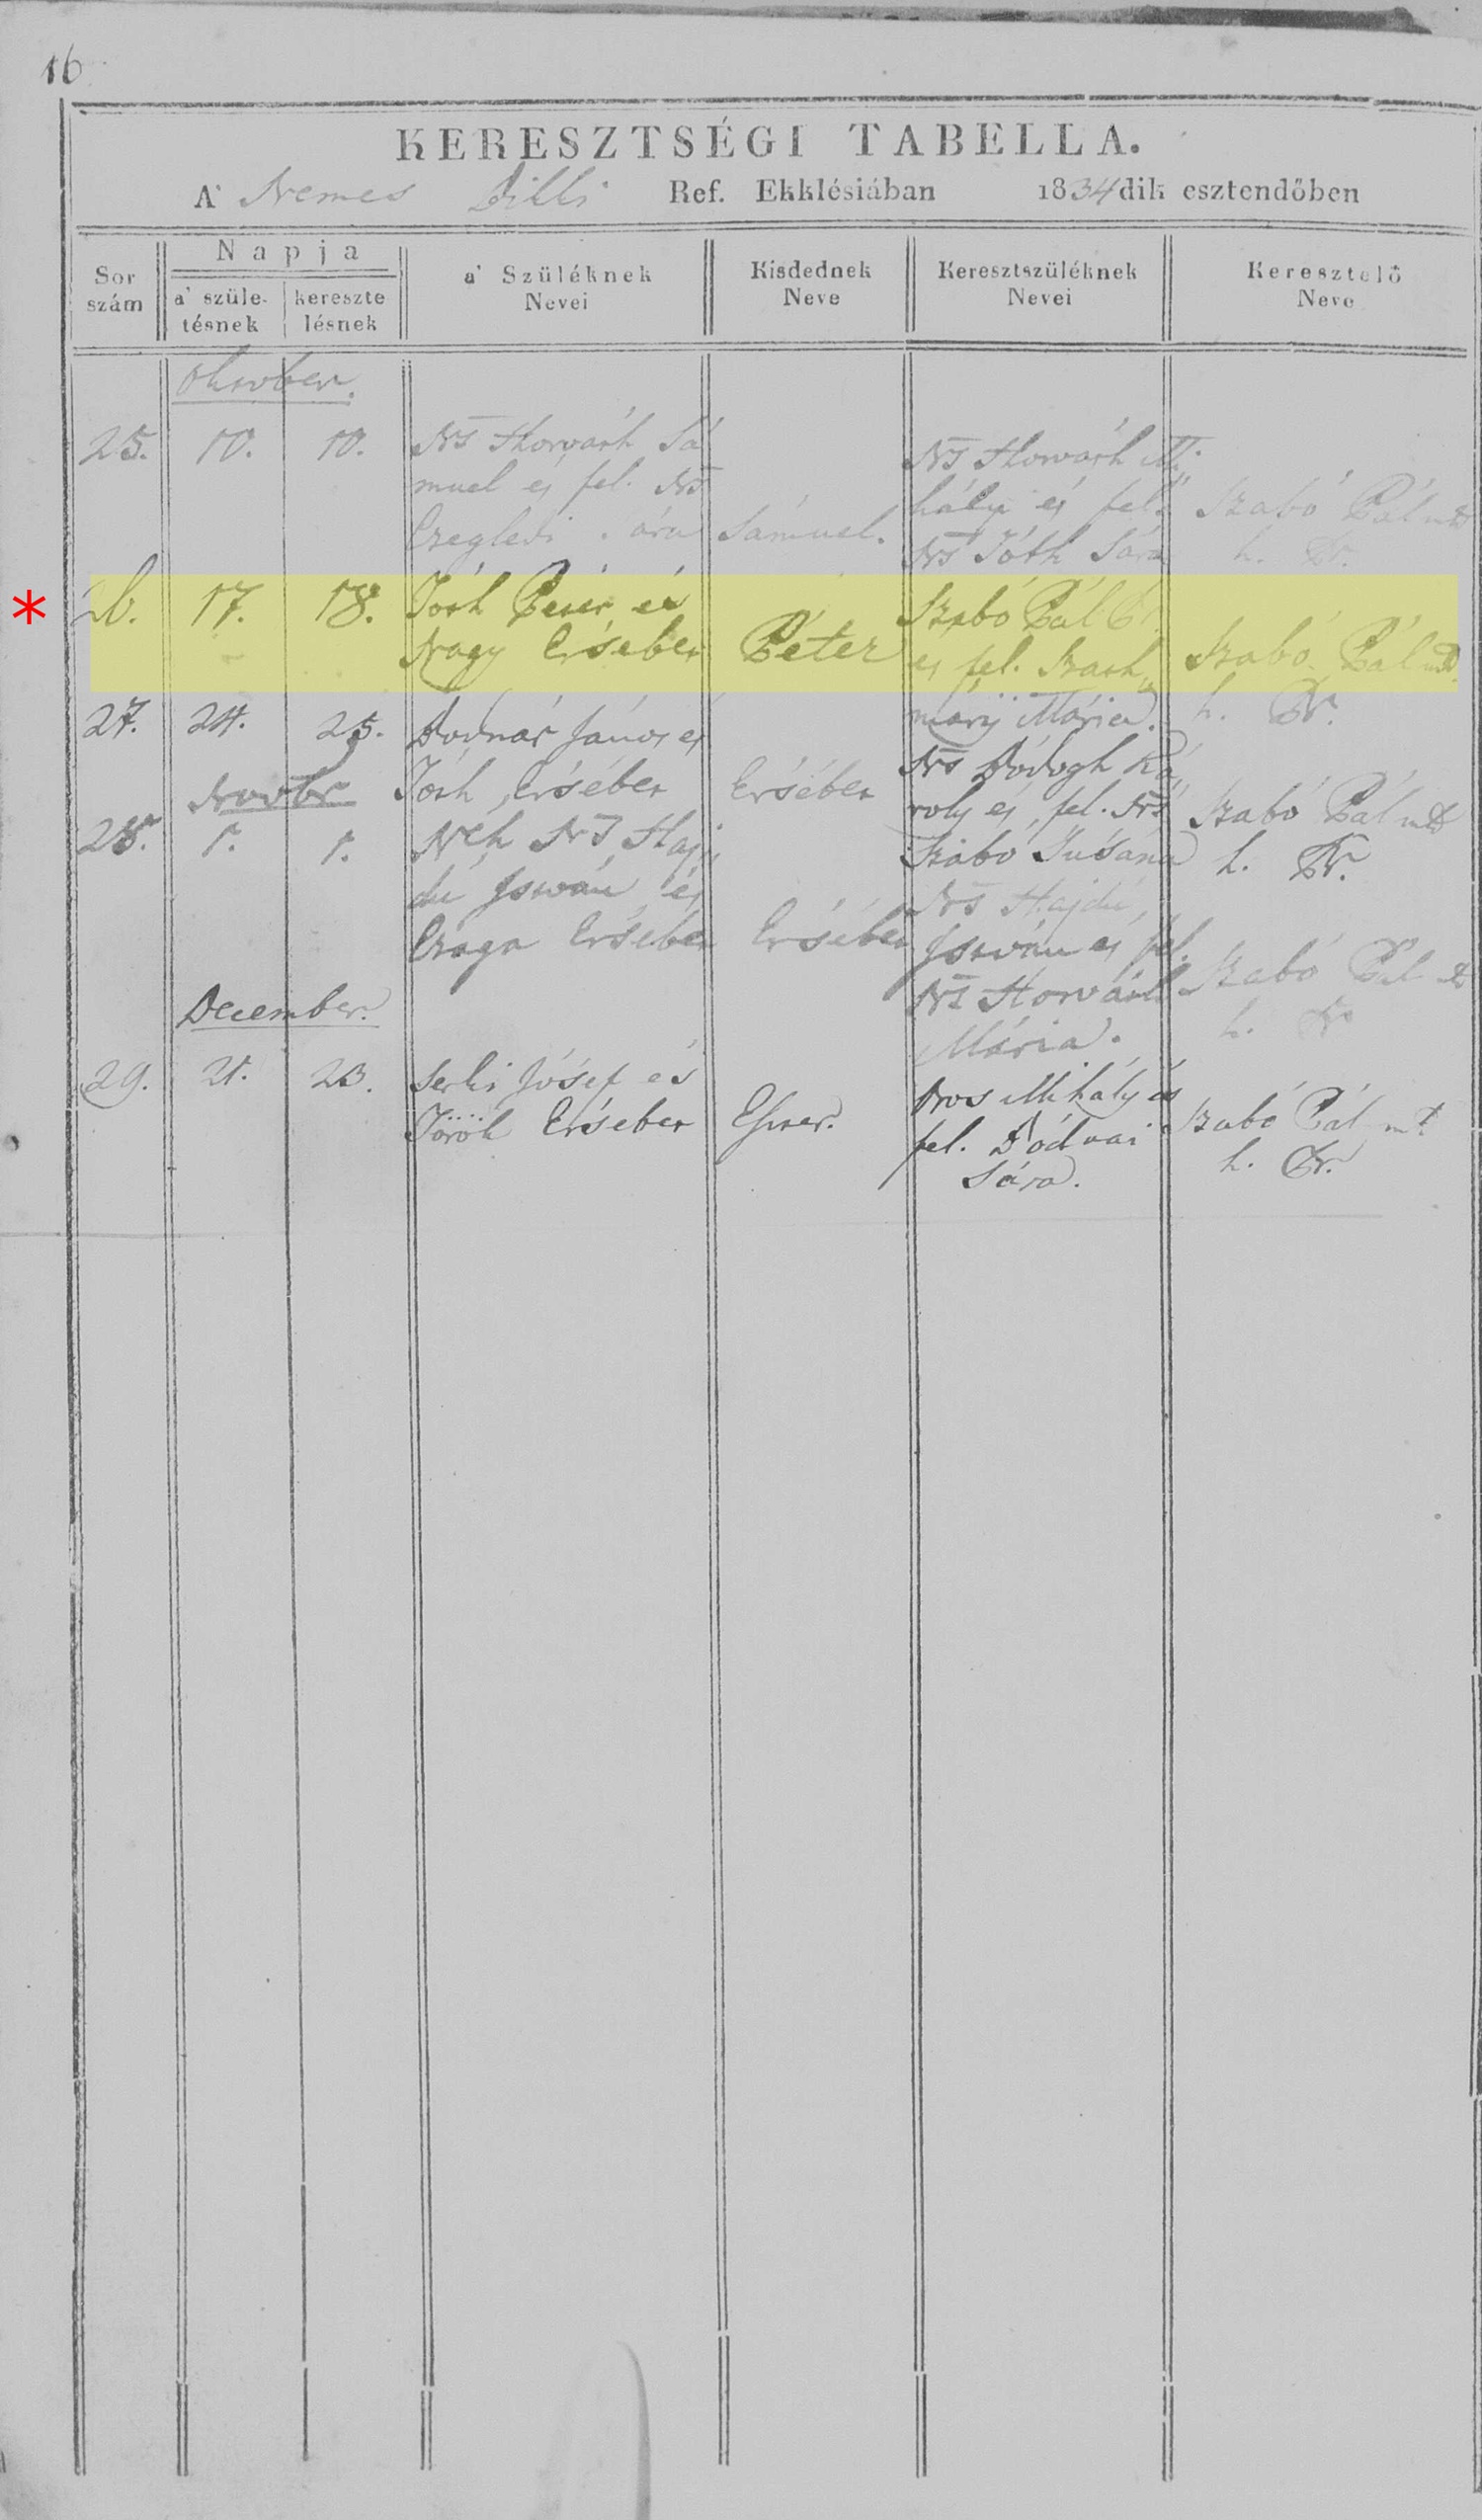 16
KERESZTSÉGI TABELLA.
A' Nemes Bikki Ref. Ekklésiában 1834dik esztendőben
Sor szám
Napja
a' születésnek
keresztelésnek
a' Szüléknek Nevei
Kisdednek Neve
Keresztszüléknek Nevei
Keresztelő Neve
October.
25. 10. 10.
Ns Horváth Sá
muel és fel. Ns
Czegledi
Sámuel.
Ns Horváth Mi
hály és fel.
Ns Tóth Sára
Szabó Pál
h. Pr.
* 26. 17. 18.
Tóth Péter és
Nagy Ersébet
Péter
Szabó Pál
és fel. Szath
máry Mária.
Szabó Pál
h. Pr.
27. 24. 25.
Bodnár János és
Tóth Ersébet
Ersébet
Ns Bódogh Ká
roly és fel. Ns
Szabó Susána
Szabó Pál
h. Pr.
Novbr
28. 1. 1.
Néh Ns Haj
du István és
Czaga Ersébet
Ersébet
Ns Hajdu
István és fel.
Ns Horváth
Mária.
Szabó Pál
h. Pr
December.
29. 21. 23.
Serki Jósef és
Török Ersébet
Eszter.
Mihály és
fel. Bódvai
Sára.
Szabó Pál
h. Pr.